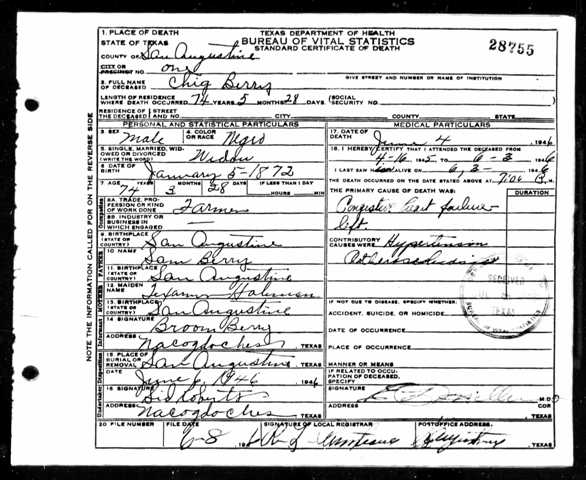 TEXAS DEPARTMENT OF HEALTH
BUREAU OF VITAL STATISTICS
STANDARD CERTIFICATE OF DEATH
28755
1. PLACE OF DEATH
STATE OF TEXAS
COUNTY OF San Augustine
CITY OR PRECINCT NO. one
GIVE STREET AND NUMBER OR NAME OF INSTITUTION
2. FULL NAME OF DECEASED Chig Berry
LENGTH OF RESIDENCE WHERE DEATH OCCURRED 74 YEARS 5 MONTHS 28 DAYS SOCIAL SECURITY NO.
RESIDENCE OF THE DECEASED STREET AND NO. CITY COUNTY STATE
PERSONAL AND STATISTICAL PARTICULARS
3. SEX Male 4. COLOR OR RACE Negro
5. SINGLE, MARRIED, WIDOWED OR DIVORCED (WRITE THE WORD) Widow
6. DATE OF BIRTH January 5-1872
7. AGE YEARS 74 MONTHS 3 DAYS 28 IF LESS THAN 1 DAY HOURS MIN
8A. TRADE, PROFESSION OR KIND OF WORK DONE Farmer
8B. INDUSTRY OR BUSINESS IN WHICH ENGAGED
9. BIRTHPLACE (STATE OR COUNTRY) San Augustine
10. NAME Sam Berry
11. BIRTHPLACE (STATE OR COUNTRY) San Augustine
12. MAIDEN NAME
13. BIRTHPLACE (STATE OR COUNTRY) San Augustine
14. SIGNATURE Broom Berry
ADDRESS Nacogdoches, TEXAS
15. PLACE OF BURIAL OR REMOVAL San Augustine, TEXAS
June 6, 1946 1946
16. SIGNATURE
ADDRESS Nacogdoches TEXAS
MEDICAL PARTICULARS
17. DATE OF DEATH June 4 1946
18. I HEREBY CERTIFY THAT I ATTENDED THE DECEASED FROM 4-16 1945 TO 6-3 1946
I LAST SAW ALIVE ON 6/3 1946
THE DEATH OCCURRED ON THE DATE STATED ABOVE AT 7:00 M.
THE PRIMARY CAUSE OF DEATH WAS: DURATION
Congestive heart failure
left.
CONTRIBUTORY CAUSES WERE: Hypertension
RECEIVED
TEXAS
BUREAU OF VITAL STATISTICS
IF NOT DUE TO DISEASE, SPECIFY WHETHER:
ACCIDENT, SUICIDE, OR HOMICIDE
DATE OF OCCURRENCE
PLACE OF OCCURRENCE
MANNER OR MEANS
IF RELATED TO OCCUPATION OF DECEASED, SPECIFY
SIGNATURE M.D.
ADDRESS COR TEXAS
20 FILE NUMBER FILE DATE 6-8 SIGNATURE OF LOCAL REGISTRAR POSTOFFICE ADDRESS TEXAS
NOTE THE INFORMATION CALLED FOR ON THE REVERSE SIDE